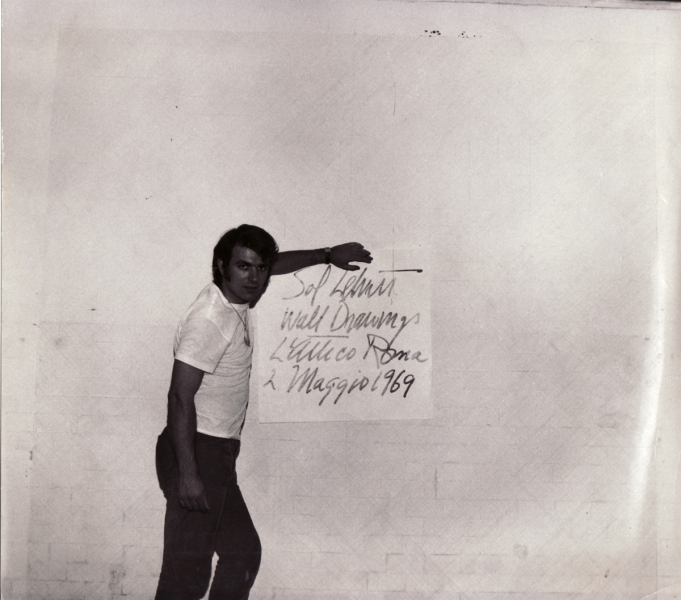 Sol Lewitt
Wall Drawings
L'Attico Roma
2 Maggio 1969